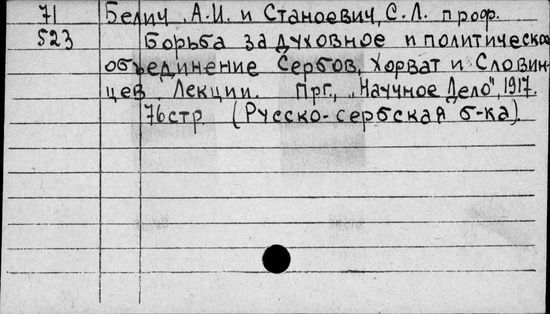 71 Белич, А.И. и Станоевич, С.Л. проф.
523 Борьба за духовное и политическое
объединение Сербов, Хорват и Словин-
цев Лекции. Прг., "Научное Дело", 1917.
76 стр. (Русско-сербская б-ка).